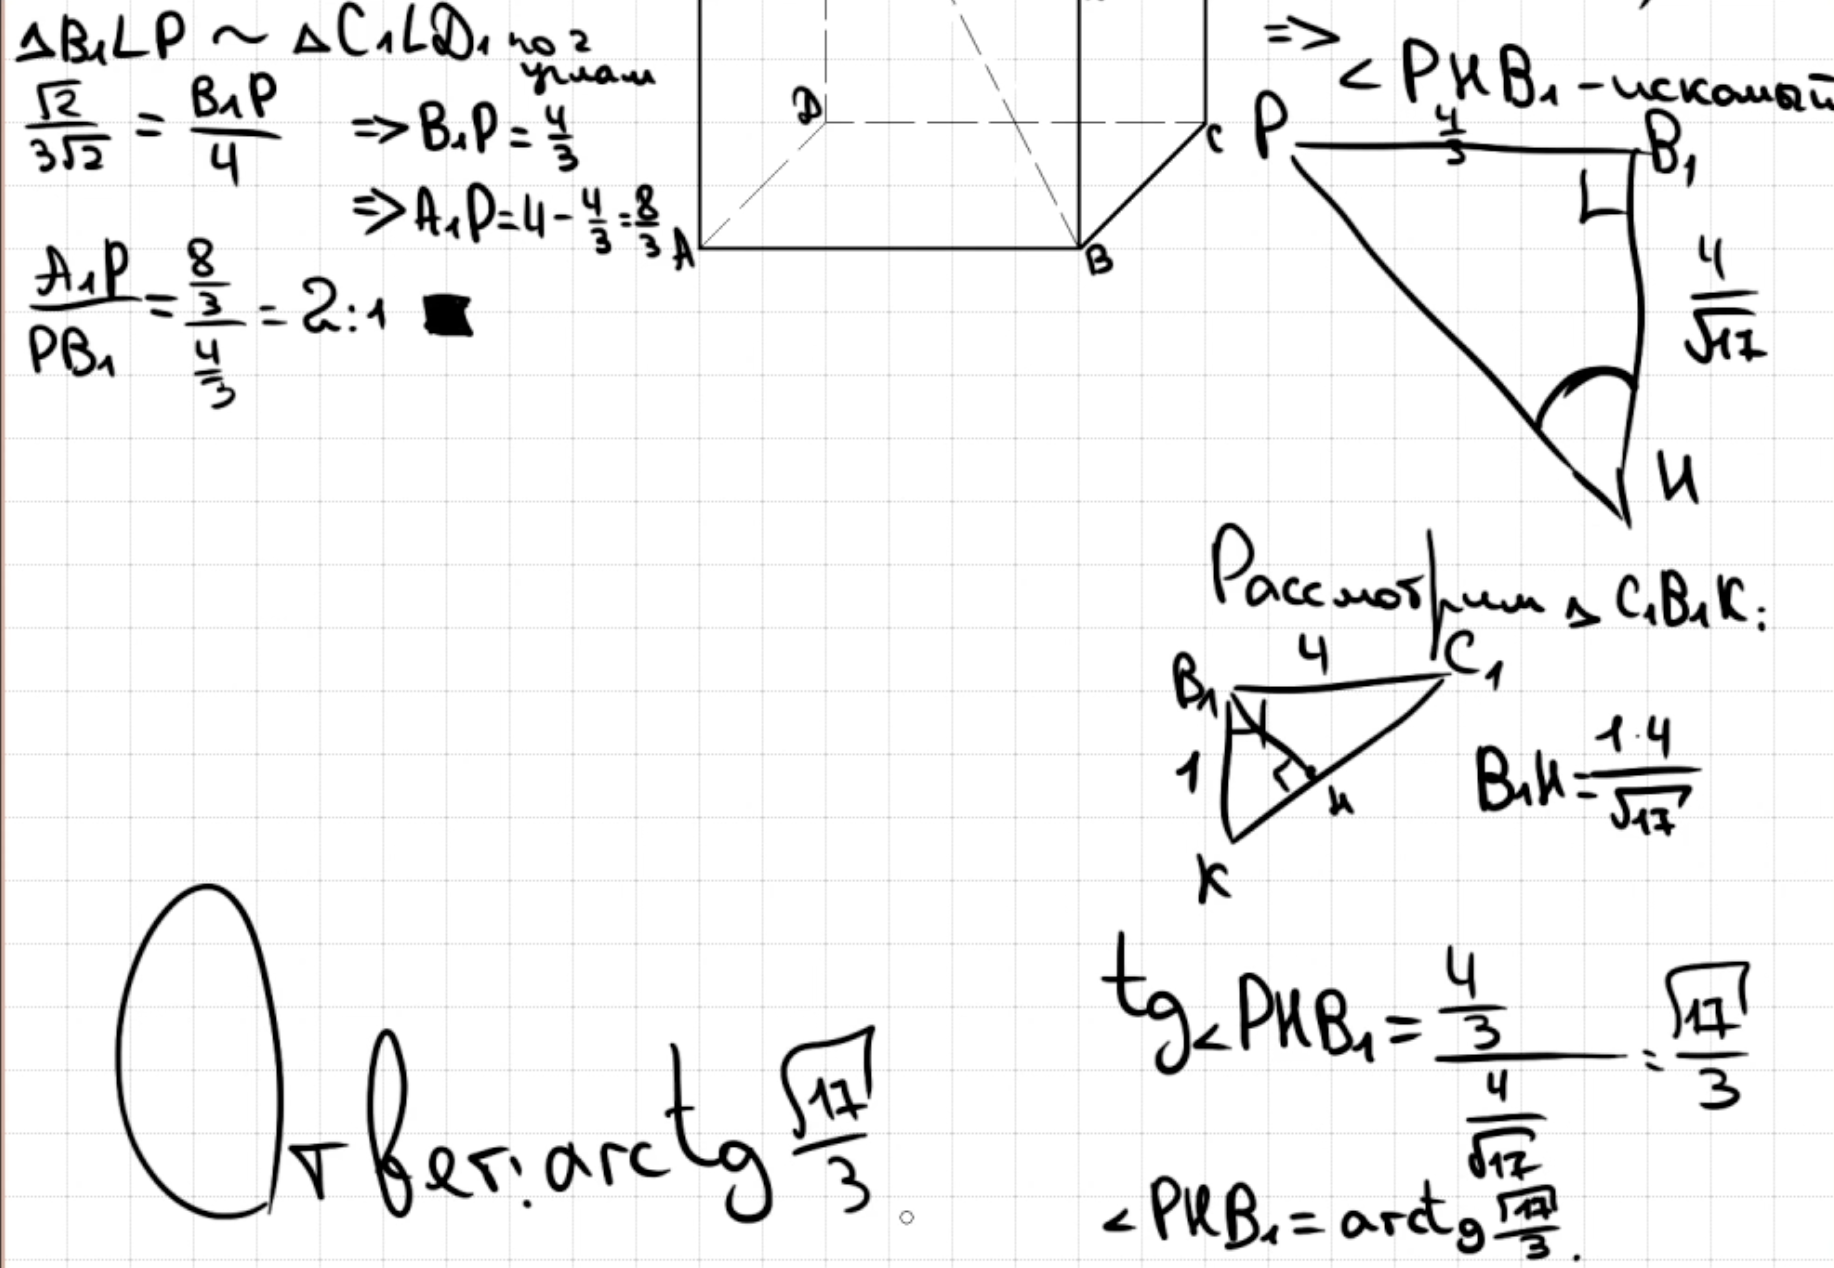 ΔB₁LP ~ ΔC₁LD₁ по 2 углам
√2/3√2 = B₁P/4 => B₁P = 4/3
=> A₁P = 4 - 4/3 = 8/3
A₁P/PB₁ = (8/3)/(4/3) = 2:1 ■
D
C
A
B
=>
< PHB₁ - искомый
P
4/3
B₁
4/√17
H
Рассмотрим Δ C₁B₁K:
B₁
4
C₁
1
H
K
B₁H = 1·4/√17
tg < PHB₁ = (4/3)/(4/√17) = √17/3
< PHB₁ = arctg √17/3.
Ответ: arctg √17/3.